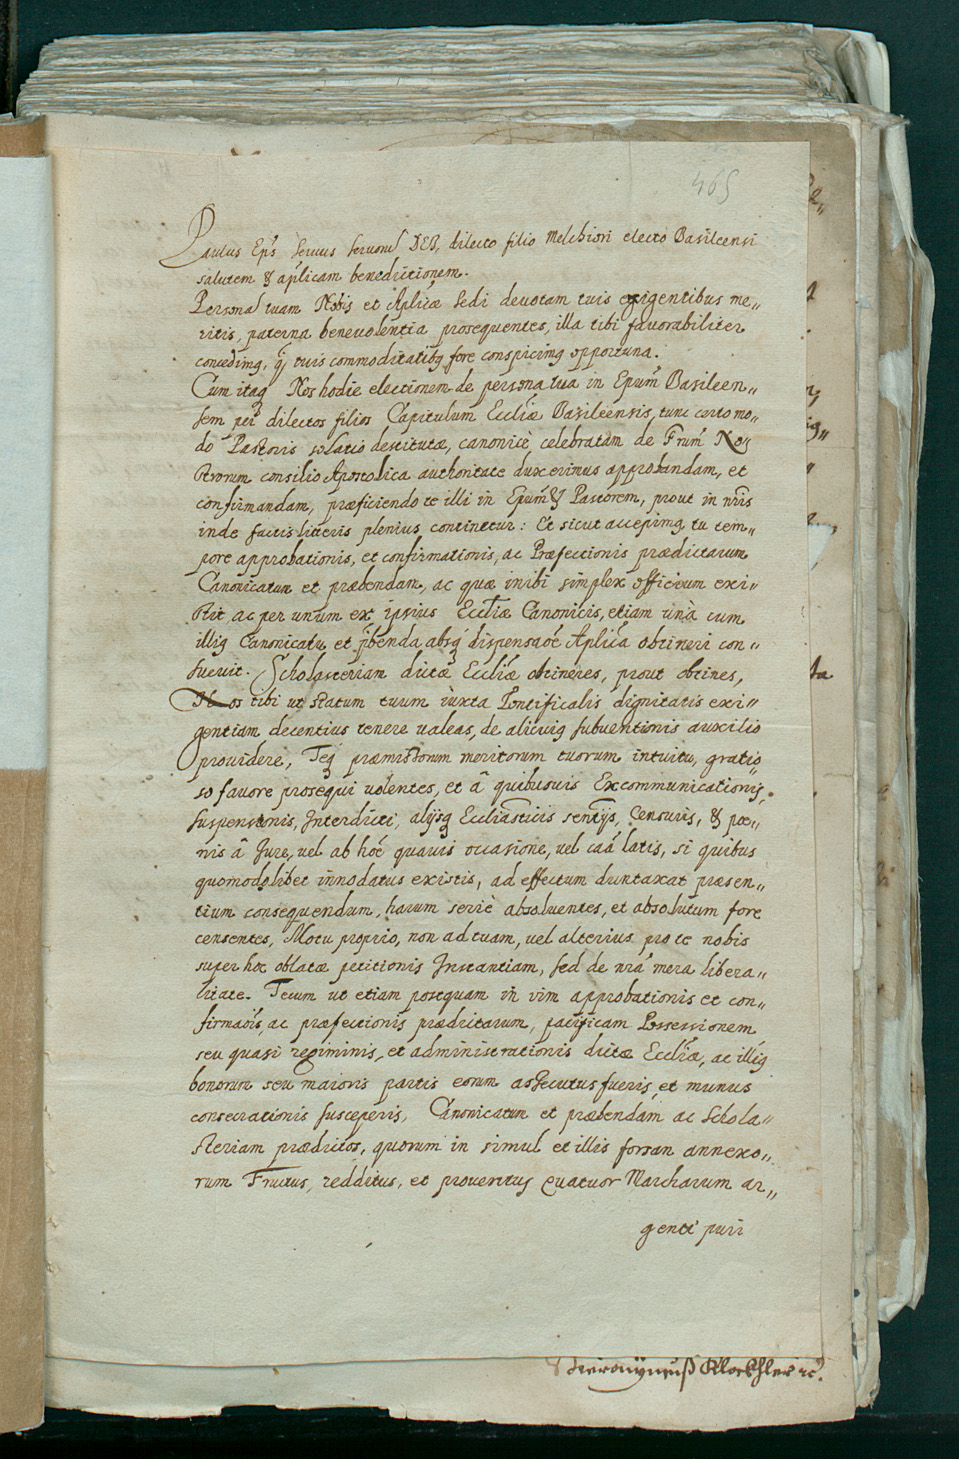 465
Paulus Eps Seruus Seruorũ DEI, dilecto filio Melchiori electo Basileensi
salutem & aplicam benedictionem.
Personã tuam Nobis et Aplicæ Sedi deuotam tuis exigentibus me„
ritis, paterna beneuolentia prosequentes, illa tibi fauorabiliter
concedimꝰ, q̃ tuis commoditatibꝰ fore conspicimꝰ opportuna.
Cum itaqꝫ Nos hodie electionem de persona tua in Epum̃ Basileen„
sem per dilectos filios Capitulum Eccliæ Basileensis, tunc certo mo„
do Pastoris solatio destitutæ, canonicè celebratam de Frum̃ Nos
strorum consilio Apostolica authoritate duxerimus approbandam, et
confirmandam, præficiendo te illi in Epum̃ & Pastorem, prout in nris
inde factis litteris plenius continetur: Et sicut accepimꝰ, tu tem„
pore approbationis, et confirmationis, ac Præfectionis prædictarum
Canonicatum et præbendam, ac quæ inibi simplex officium exi„
stit, ac per unum ex ipsius Eccliæ Canonicis, etiam unà cum
illiꝰ Canonicatu, et p̃benda absqꝫ dispensaõe Aplica obtineri con„
sueuit. Scholasteriam dictæ Eccliæ obtineres, prout obtines,
Nos tibi ut statum tuum iuxta Pontificalis dignitatis exi„
gentiam decentius tenere ualeas, de alicuiꝰ subuentionis auxilio
prouidere, Teqꝫ præmissorum meritorum tuorum intuitu, gratio„
so fauore prosequi uolentes, et â quibusuis Excommunicationis,
suspensionis, Interdicti, alijsqꝫ Eccliasticis sentijs, Censuris, & pœ„
nis â Jure, uel ab hoẽ quauis occasione, uel caã latis, si quibus
quomodolibet innodatus existis, ad effectum duntaxat præsen„
tium consequendum, harum seriè absoluentes, et absolutum fore
censentes, Motu proprio, non ad tuam, uel alterius pro te nobis
super hoc oblatæ petitionis Instantiam, sed de nrã mera libera„
litate. Tecum ut etiam postquam in vim approbationis et con„
firmaõis, ac præfectionis prædictarum, pacificam Possessionem
seu quasi regiminis, et administrationis dictæ Eccliæ, ac illiꝰ
bonorum seu maioris partis eorum assecutus fueris, et munus
consecrationis susceperis, Canonicatum et præbendam ac Schola„
steriam prædictos, quorum in simul et illis forsan annexo„
rum Fructus, redditus, et prouentus quatuor Marcharum ar„
genti puri
Hieronÿmuß Klockhler